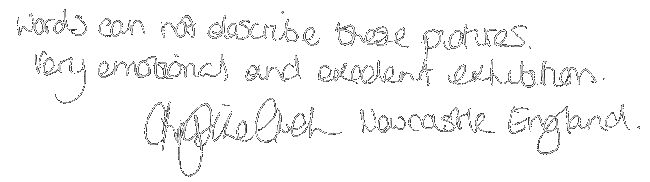 Words can not describe these pictures.
Very emotional and excellent exhibition.
Newcastle England.